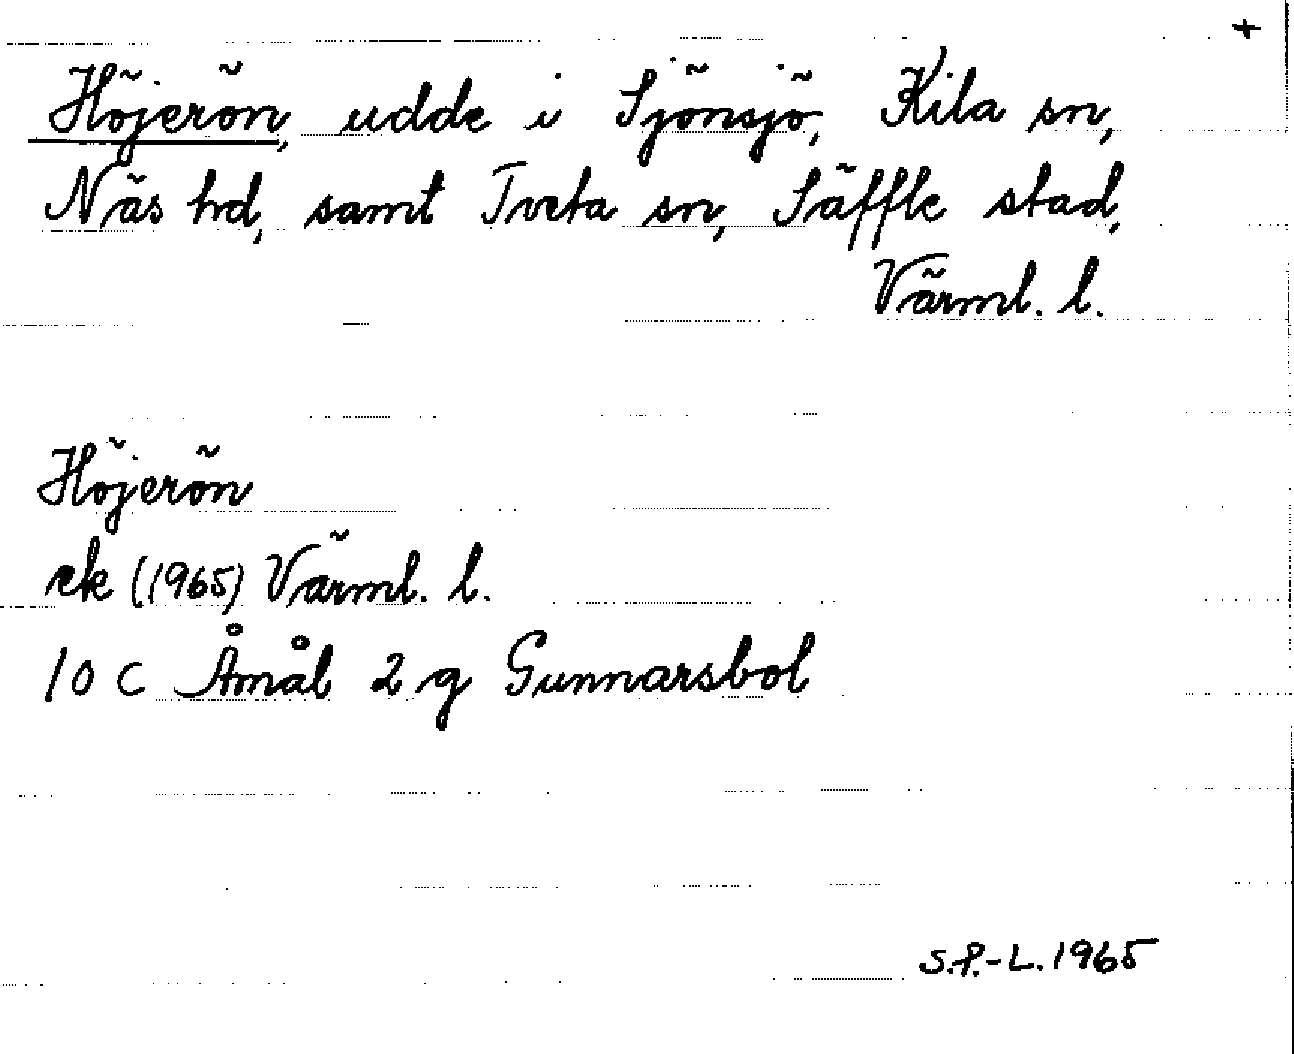 +
Höjerön, udde i Sjönsjö, Kila sn,
Näs hd, samt Tveta sn, Säffle stad,
Värml. l.
Höjerön
ek (1965) Värml. l.
10 C Åmål 2 g Gunnarsbol
S.P.-L. 1965